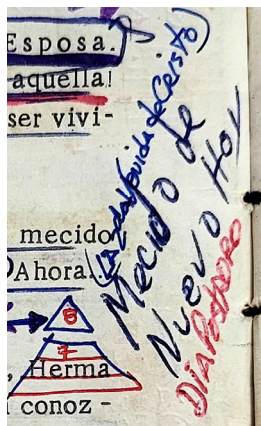 Esposa.
aquella!
ser vivi-
mecido
Ahora...
8
7
, Herma
conoz -
Venida de Cristo)
Mecido de
Nuevo Hoy
Día Postrero